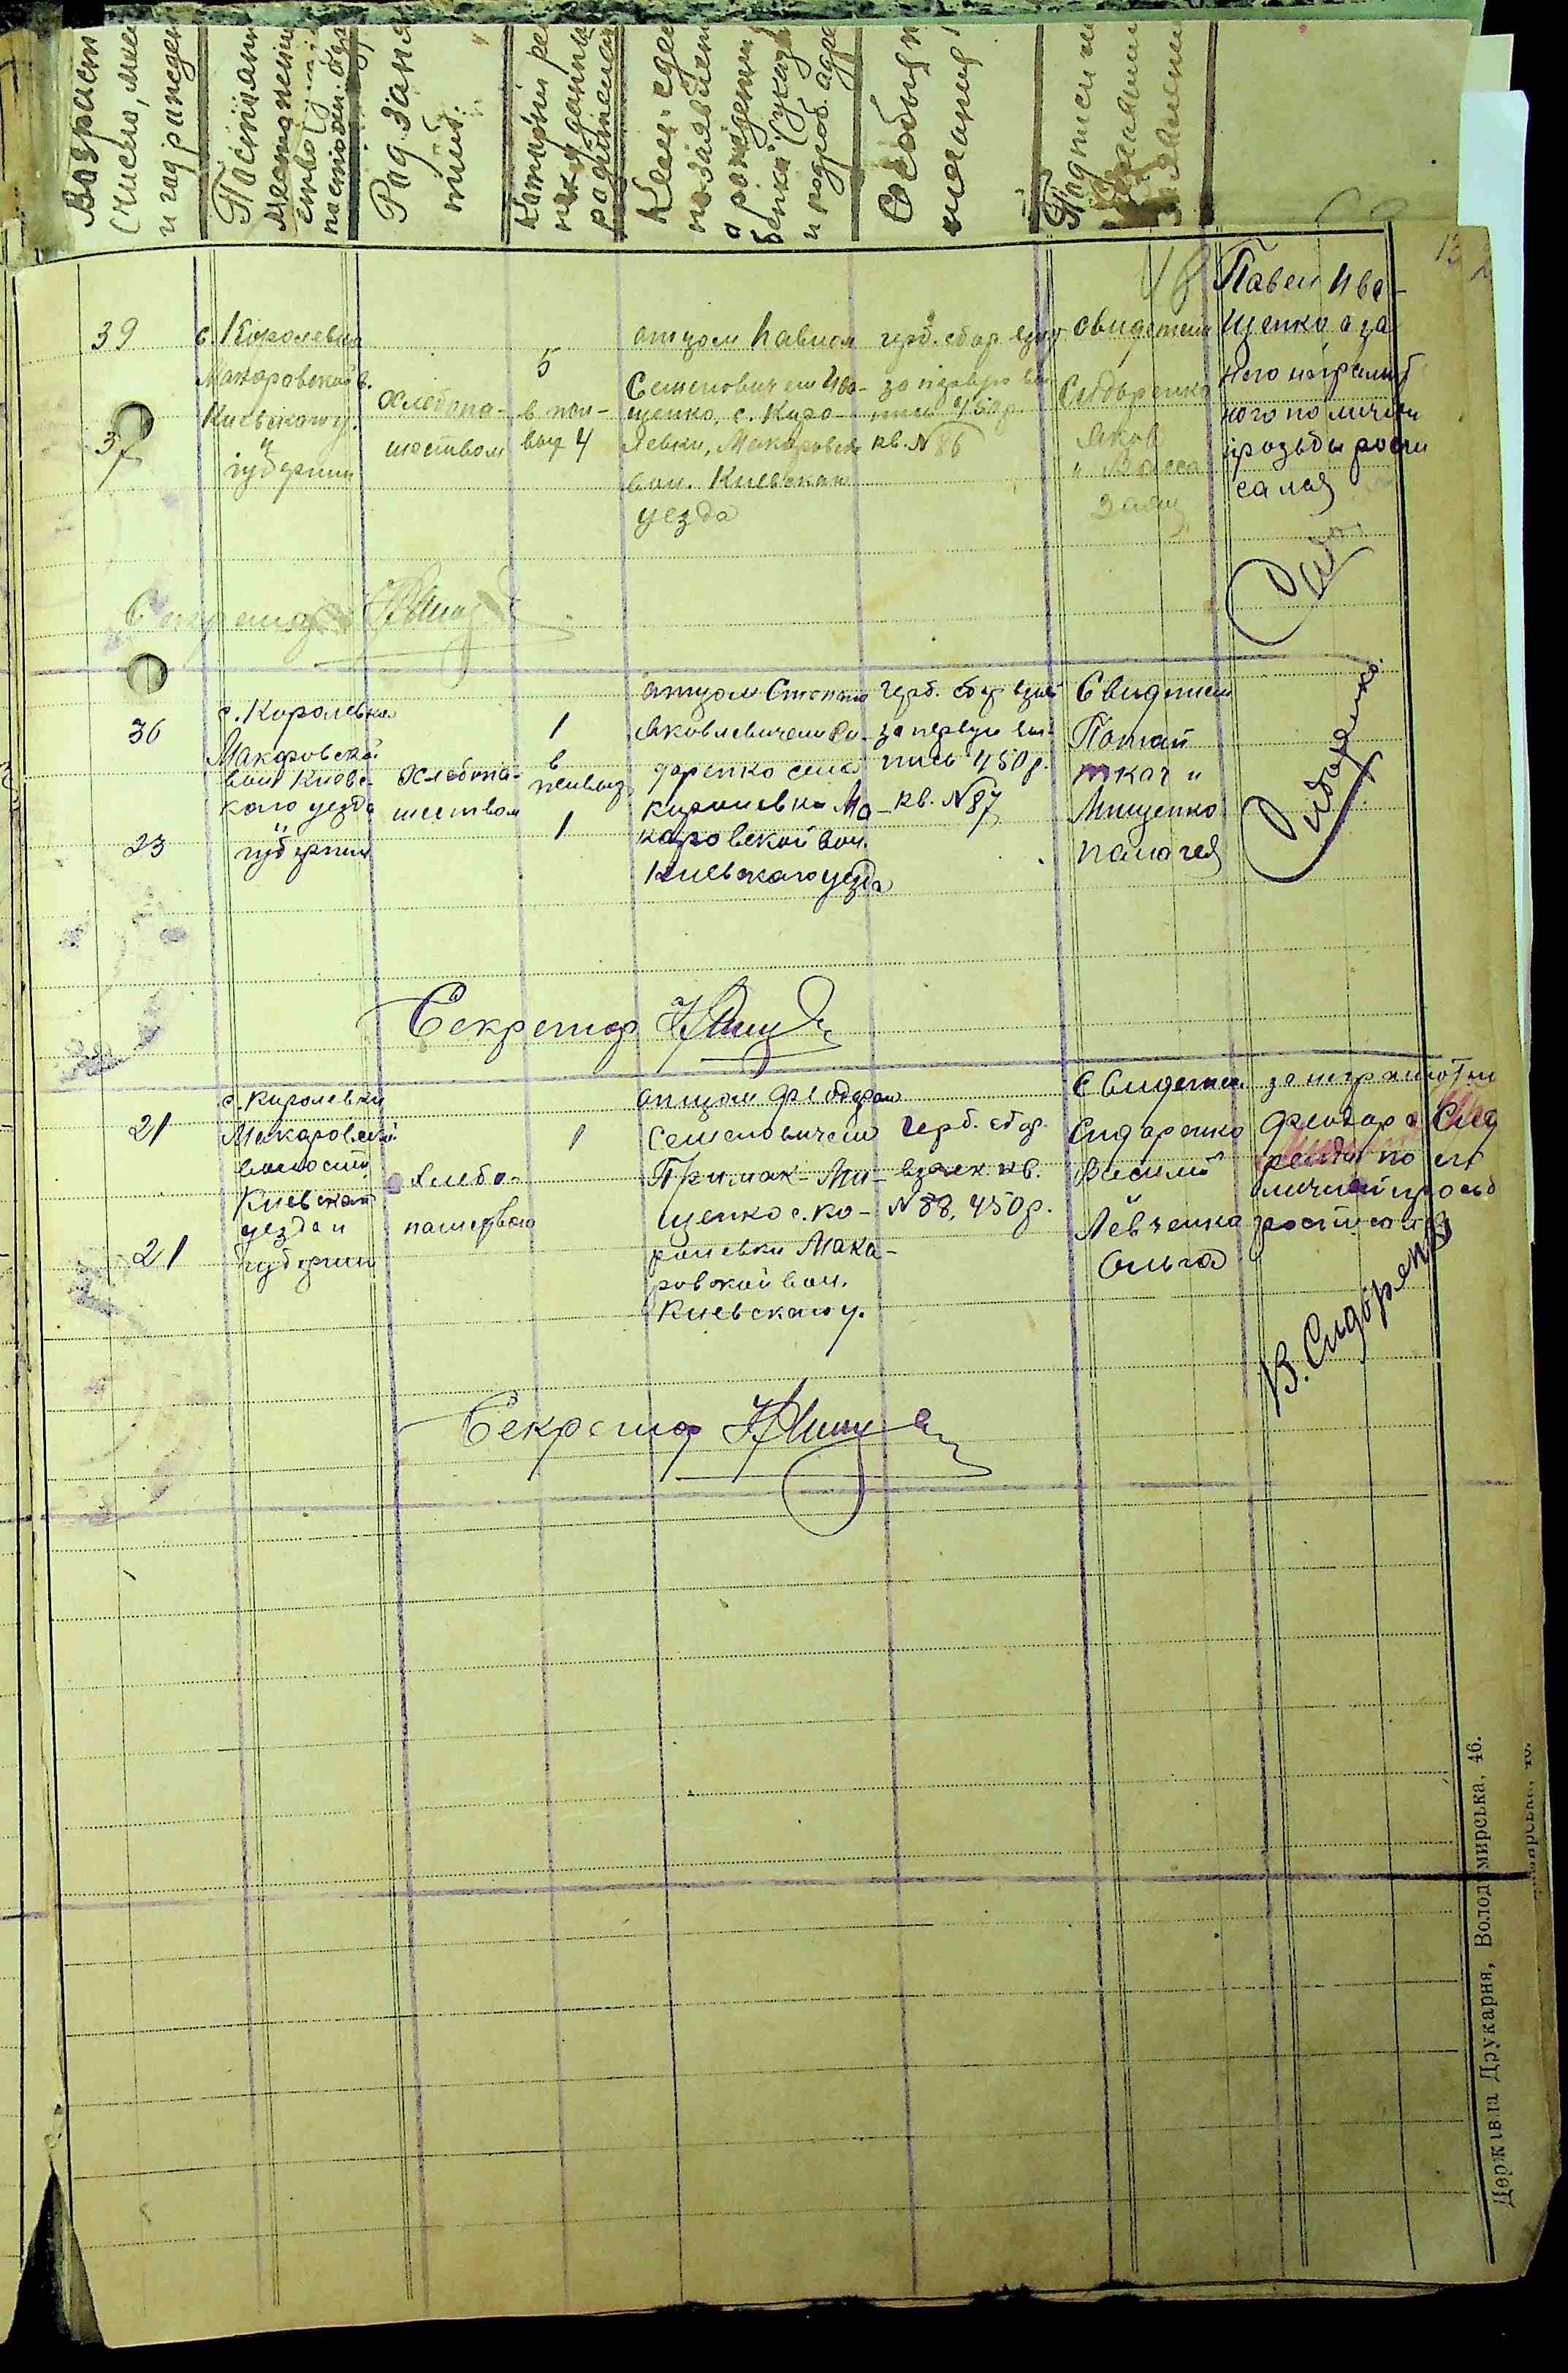 Возраст
(число, мес
и год рожден
Постоянн
местожени
ство
Род заня
тий.
Который ре
родителей
Кем сде
но заявлен
о рожден
бенка (указ
и подроб. адре
Особыя
мечания
Подписи
39
37
с. Королевка
Макаровской в.
Киевского у.
" губернии
хлебопа-
шеством
5
в жи-
вых 4
отцом Павлом
Семеновичем Ива-
щенко, с. Коро-
левки, Макаровск
вол. Киевского
уезда
герб. сбор взят
за первую вы-
пись 450 р.
кв. № 86
свидетели
Сидоренко
Яков
" Васса
Заяц
Павел Ива-
щенко а за
него неграмот
ного по личной
прозьбе роспи
сался
Сидо
Секретарь
36
23
с. Королевка
Макаровской
вол. Киевс-
кого уезда
" губернии
хлебопа-
шеством
1
в
живых
1
отцом Степано
Яковлевичем Си-
доренко села
Королевки Ма-
каровской вол.
Киевского уезда
герб. сбор взят
за первую вы-
пись 450 р.
кв. № 87
Свидетели
Потап
Ткач "
Мищенко
Палагея
Сидоренко
Секретарь
21
21
с. Королевки
Макаровской
волости
Киевской
уезда и
губернии
Хлебо-
пашество
1
отцом Феодором
Семеновичем
Примак-Ми-
щенко с. Ко-
ролевки Мака-
ровской вол.
Киевского у.
герб. сбор.
взыск. кв.
№ 88, 450 р.
Свидетели
Сидоренко
Василий
Левченко
Ольга
за неграмотн
Феодора
по его
личной прозьб
росписался
В. Сидоренко
Секретарь
Державна Друкарня, Володимирська, 46.